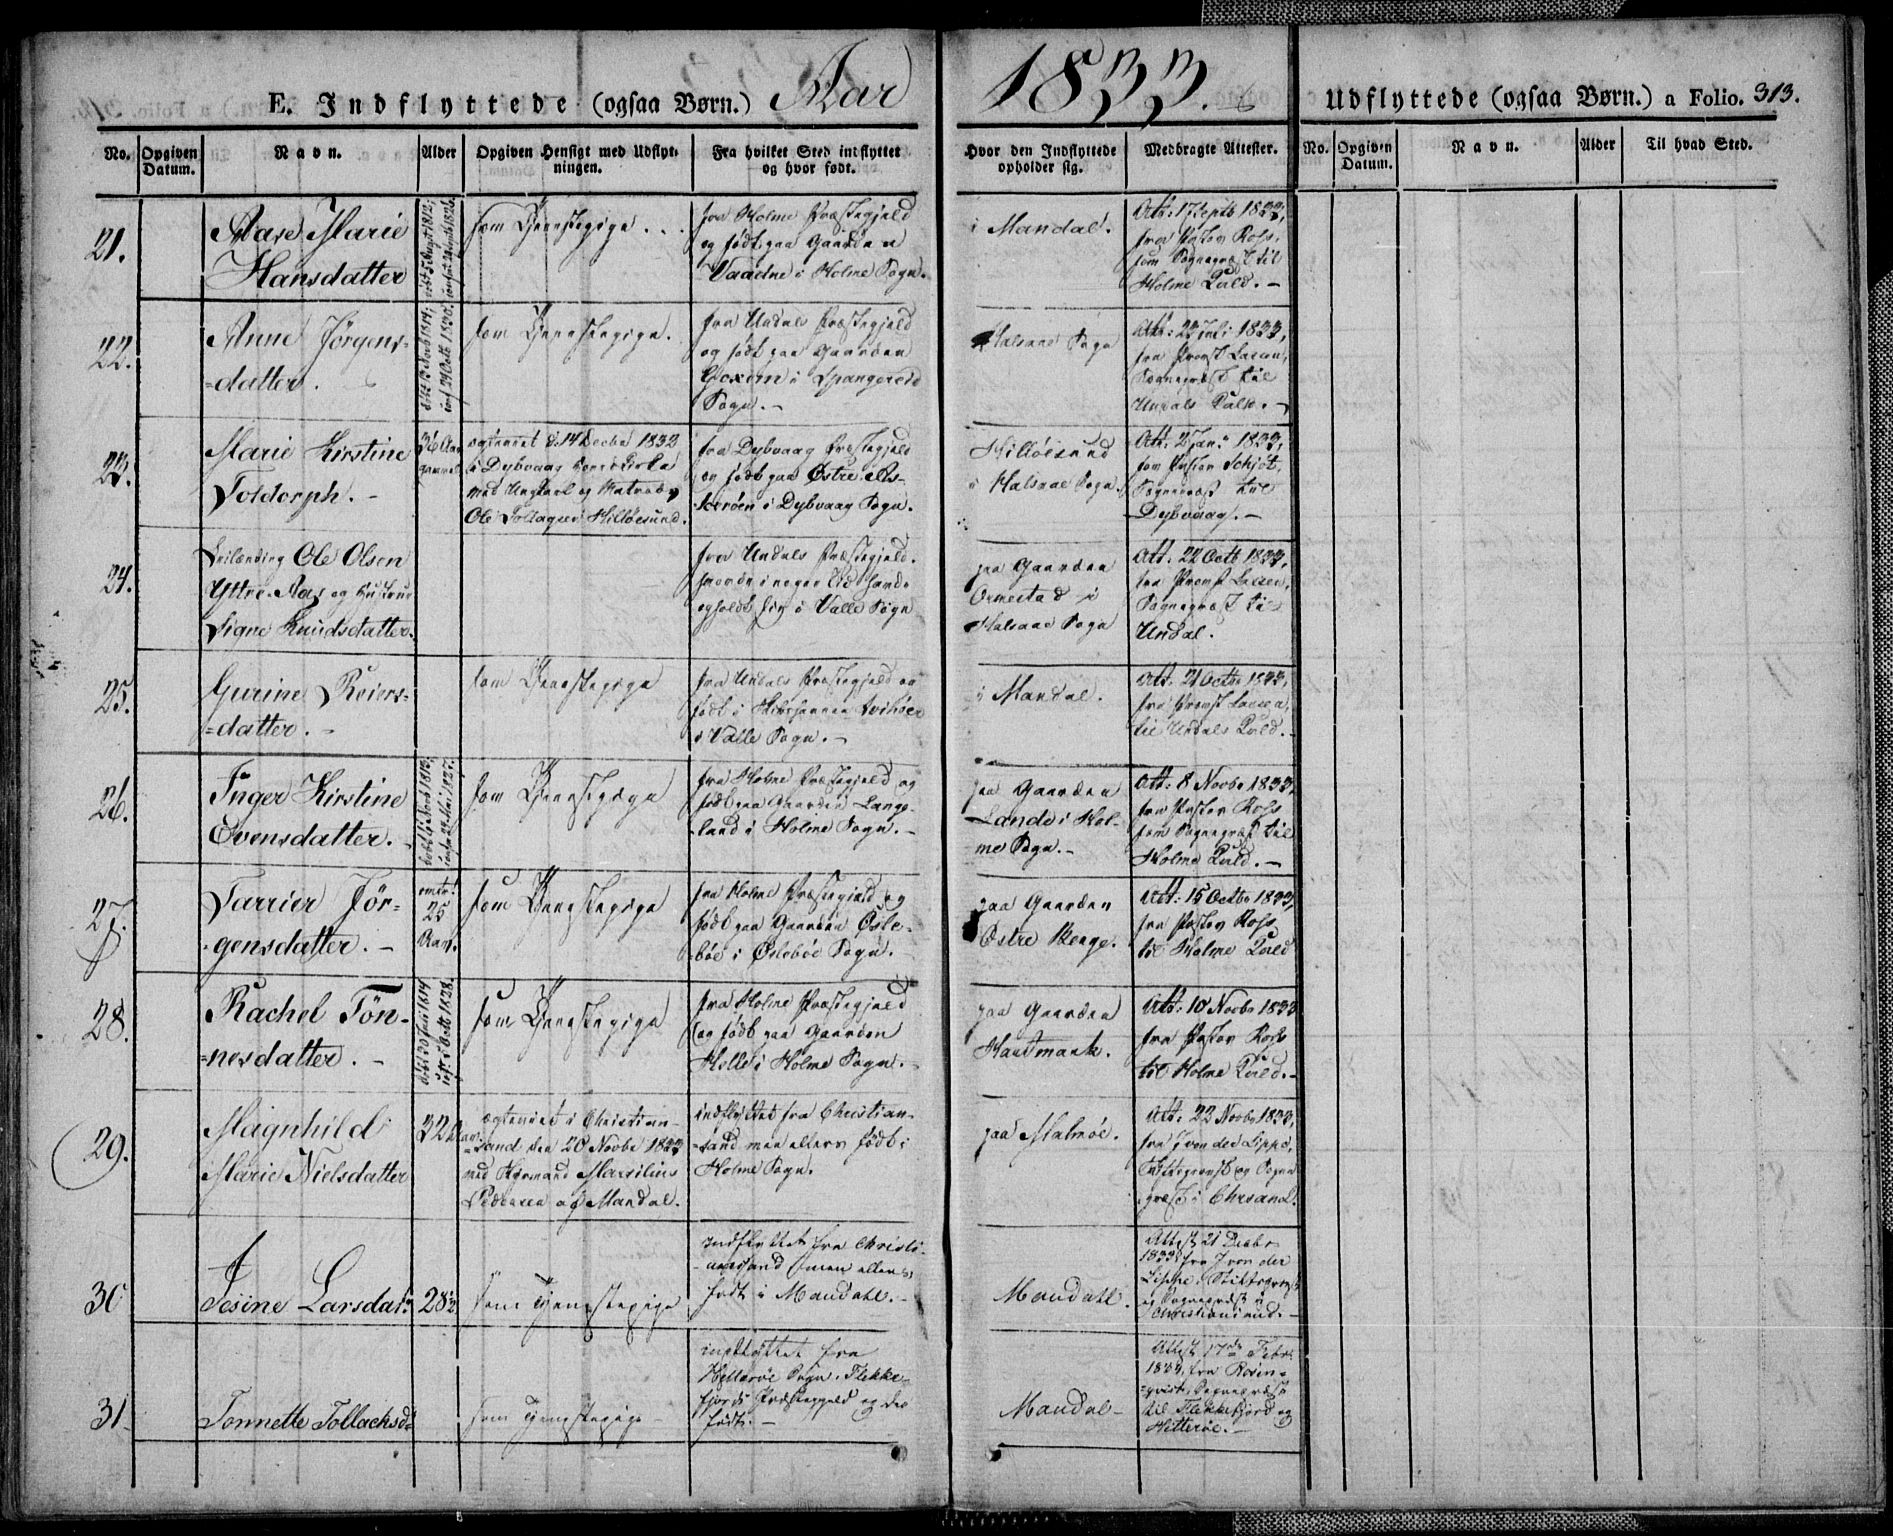 E. Indflyttede (ogsaa Børn.) Aar 1833. Udflyttede (ogsaa Børn.) a Folio. 313.
No. Opgiven Datum. Navn. Alder Opgiven Hensigt med Udflyt- ningen. Fra hvilket Sted indflyttet og hvor født. Hvor den Indflyttede opholder sig. Medbragte Attester. No. Opgiven Datum. Navn. Alder Til hvad Sted.
21.
Aase Marie
Hansdatter
som Tjenestepige
fra Holme Præstegjeld
og født paa Gaarden
Vaadne i Holme Sogn.
i Mandal.
Att: 17 Septb 1833,
fra Pastor Ross,
som Sognepræst til
Holme Kald. -
22.
Anne Jörgens-
=datter.
som Tjenestepige.
fra Undals Præstegjeld
og født paa Gaarden
i Spangereid
Sogn. -
Halsaae Sogn
Att: 22 Juli 1833,
fra Provst Lassen,
Sognepræst til
Undals Kald. -
23.
Marie Kirstine
Toldorph. -
36 Aar
gammel
ægteviet d. 14 Decbr 1832
i Dybvaag
med Ungkarl og Matros
Ole Tollagsen Hilløesund.
fra Dybvaag Præstegjeld
og født paa Østre Ris-
=øen i Dybvaag Sogn.
Hilløesund
i Halsaae Sogn.
Att: 2 Jan: 1833,
fra Pastor Schjøt,
Sognepræst til
Dybvaag. -
24.
Ole Olsen
Yttre-Aas og Hustrue
Signe Knudsdatter.
fra Undals Præstegjeld,
i Valle Sogn
paa Gaarden
Ormestad i
Halsaae Sogn
Att. 22 Octb 1833,
fra Provst Lassen,
Sognepræst til
Undal.
25.
Gurine Reiers-
=datter. -
som Tjenestepige
fra Undals Præstegjeld og
født i
i Valle Sogn. -
i Mandal.
Att. 21 Octbr 1833,
fra Provst Lassen,
til Undals Kald.
26.
Inger Kirstine
Evensdatter. -
som Tjenestepige
fra Holme Præstegjeld og
født paa Gaarden Lange-
=land i Holme Sogn. -
paa Gaarden
Lande i Hol-
me Sogn. -
Att: 8 Novbr 1833,
fra Pastor Ross
som Sognepræst til
Holme Kald. -
27.
Tarrier Jör-
=gensdatter. -
omtr:
25
Aar.
som Tjenestepige
fra Holme Præstegjeld og
født paa Gaarden Øsle-
=böe i Øslebøe Sogn. -
paa Gaarden
Østre Berge.
Att: 15 Octbr 1833,
fra Pastor Ross
til Holme Kald
28.
Rachel Tön-
=nesdatter. -
som Tjenestepige
fra Holme Præstegjeld
og født paa Gaarden
Holle i Holme Sogn. -
paa Gaarden
Att: 10 Novbr 1833
fra Pastor Ross
til Holme Kald. -
29.
Magnhild
Marie Nielsdatter
32
ægteviet i Christian-
=sand den 20 Novbr 1833
med Marsilius
Pedersen af Mandal.
indflyttet fra Christian-
=sand men ellers født i
Holme Sogn.
paa Malmöe.
Att. 23 Novbr 1833,
fra J von der Lippe,
Stiftsprovst og Sogne
præst i Chrsand.
30
Josine Larsdatr
28
som Tjenestepige
indflyttet fra Christi-
=ansand men ellers
født i Mandahl. -
Mandahl.
Attest 21 Decbr
1833 fra J von der
Lippe, Stiftsprovst
og Sognepræst i
Christiansand. -
31
Tonnette Tollachsd.
som Tjenestepige -
indflyttet fra
Hitterøe Sogn, Flekke-
fjords Præstegjeld og der
født. -
Mandal -
Attest 17de Febr.
1833, fra Rosen-
=qvist, Sognepræst
til Flekkefjord og
Hitterøe. -